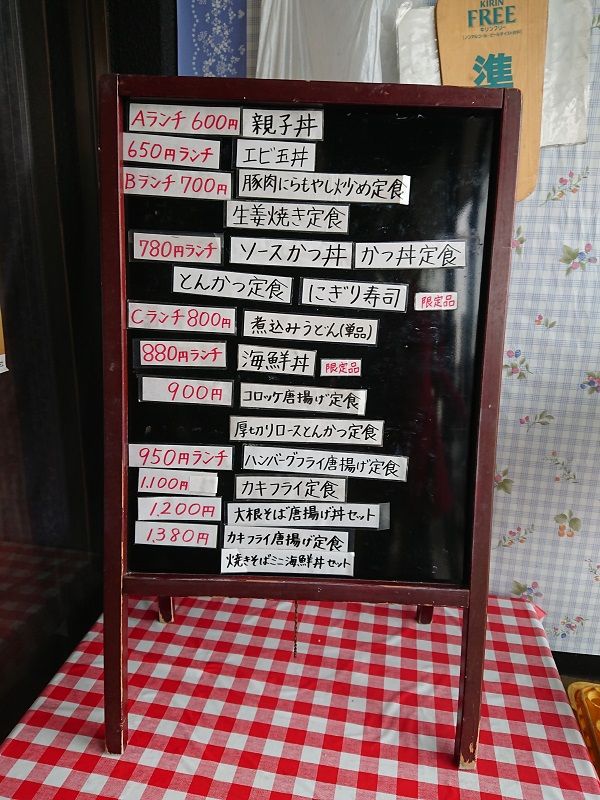 KIRIN
FREE
キリンフリー
準
Aランチ 600円 親子丼
650円ランチ エビ玉丼
Bランチ 700円 豚肉にらもやし炒め定食
生姜焼き定食
780円ランチ ソースかつ丼 かつ丼定食
とんかつ定食 にぎり寿司 限定品
Cランチ 800円 煮込みうどん(単品)
880円ランチ 海鮮丼 限定品
900円 コロッケ唐揚げ定食
厚切りロースとんかつ定食
950円ランチ ハンバーグフライ唐揚げ定食
1.100円 カキフライ定食
1.200円 大根そば唐揚げ丼セット
1.380円 カキフライ唐揚げ定食
焼きそばミニ海鮮丼セット